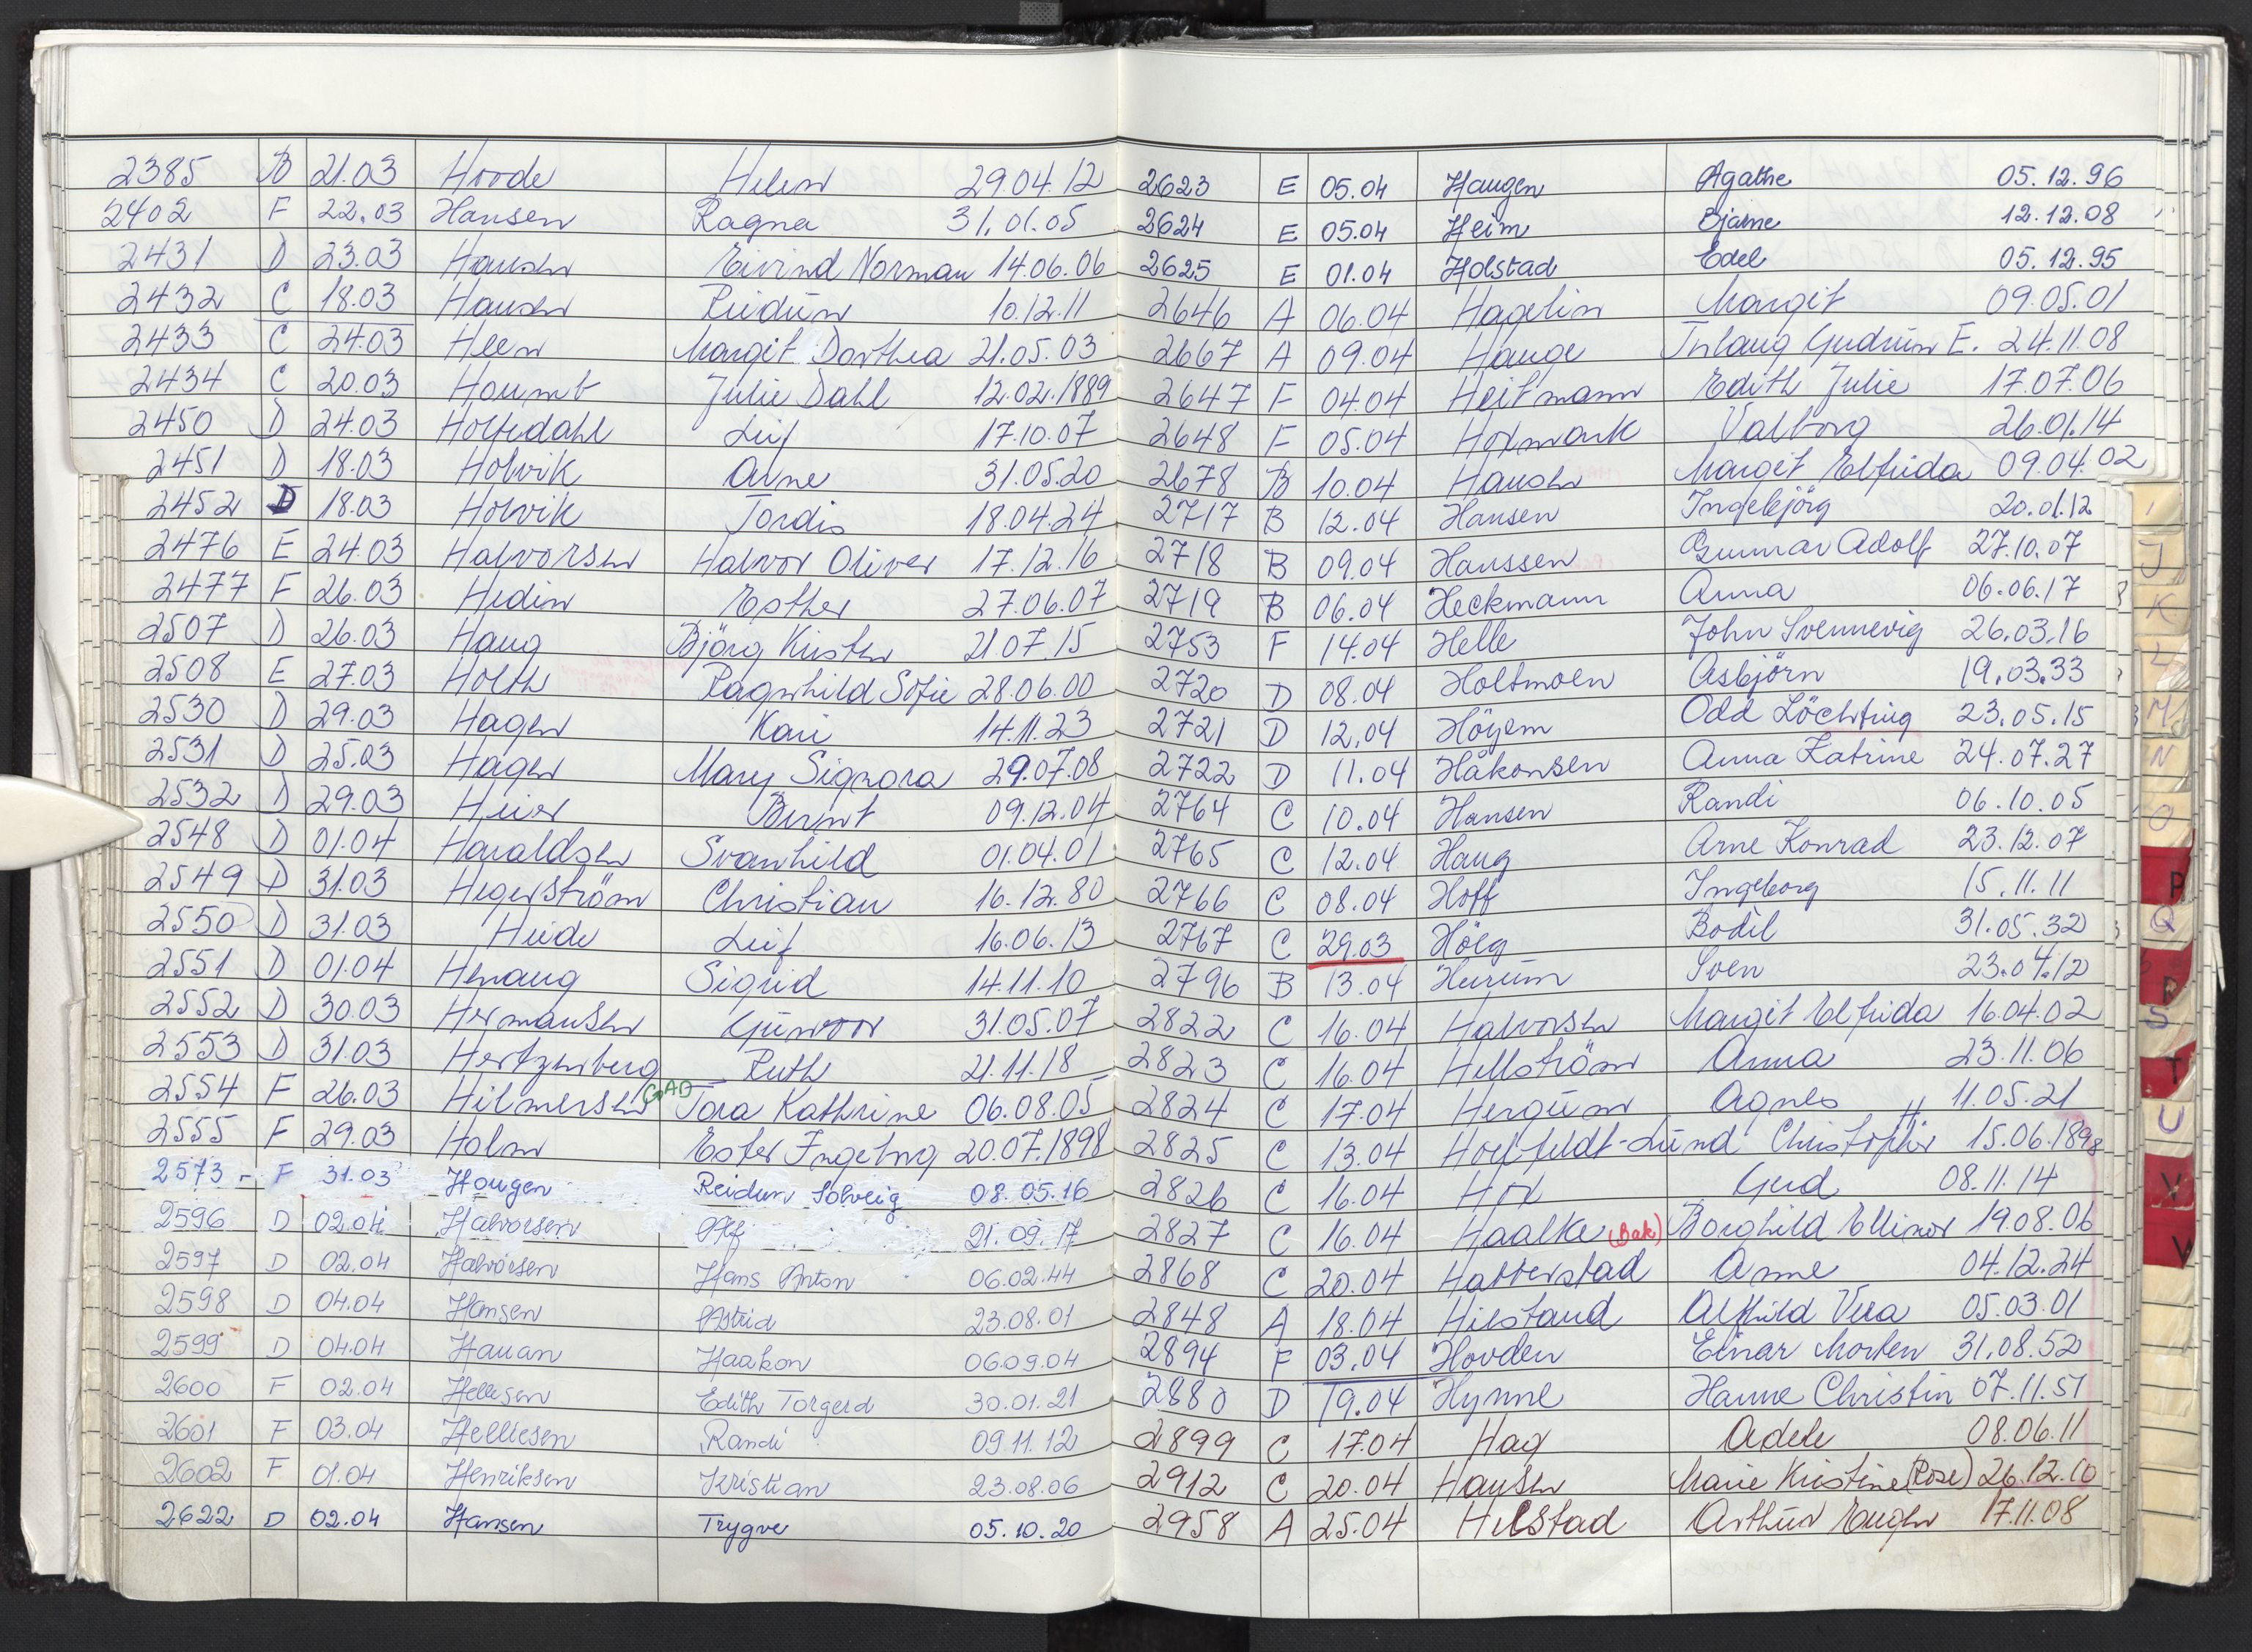 2385 B 21.03 Hovde Helen 29.04.12
2402 F 22.03 Hansen Ragna 31.01.05
2431 D 23.03 Hansen Eivind Norman 14.06.06
2432 C 18.03 Hansen Reidun 10.12.11
2433 C 24.03 Heen Margit Dorthea 21.05.03
2434 C 20.03 Julie Dahl 12.02.1889
2450 D 24.03 Holtedahl Leif 17.10.07
2451 D 18.03 Holvik Arne 31.05.20
2452 D 18.03 Holvik Tordis 18.04.24
2476 E 24.03 Halvorsen Halvor Oliver 17.12.16
2477 F 26.03 Hedin Esther 27.06.07
2507 D 26.03 Haug Björg Kirsten 21.07.15
2508 E 27.03 Holth Ragnhild Sofie 28.06.00
2530 D 29.03 Hagen Kari 14.11.23
2531 D 25.03 Hagen Mary Signora 29.07.08
2532 D 29.03 Heier Bernt 09.12.04
2548 D 01.04 Haraldsen Svanhild 01.04.01
2549 D 31.03 Hegerström Christian 16.12.80
2550 D 31.03 Heide Leif 16.06.13
2551 D 01.04 Henaug Sigrid 14.11.10
2552 D 30.03 Hermansen Gunvor 31.05.07
2553 D 31.03 Hertzenberg Ruth 21.11.18
2554 F 26.03 Hilmersen GAD Tora Kathrine 06.08.05
2555 F 29.03 Holm Ester Ingeborg 20.07.1898
2573 - F 31.03 Hougen Reidun Solveig 08.05.16
2596 D 02.04 Halvorsen Alf 21.09.17
2597 D 02.04 Halvorsen Hans Anton 06.02.44
2598 D 04.04 Hansen Astrid 23.08.01
2599 D 04.04 Hauan Haakon 06.09.04
2600 F 02.04 Hellesen Edith Torgerd 30.01.21
2601 F 03.04 Helliesen Randi 09.11.12
2602 F 01.04 Henriksen Kristian 23.08.06
2622 D 02.04 Hansen Trygve 05.10.20
2623 E 05.04 Haugen Agathe 05.12.96
2624 E 05.04 Heim Bjarne 12.12.08
2625 E 01.04 Holstad Edel 05.12.95
2646 A 06.04 Hagelin Margit 09.05.01
2667 A 09.04 Hauge Gudrun E. 24.11.08
2647 F 04.04 Heitmann Edith Julie 17.07.06
2648 F 05.04 Holmark Valborg 26.01.14
2678 B 10.04 Hansen Margit Elfrida 09.04.02
2717 B 12.04 Hansen Ingebjörg 20.01.12
2718 B 09.04 Hanssen Gunnar Adolf 27.10.07
2719 B 06.04 Heckmann Anna 06.06.17
2753 F 14.04 Helle John Svennevig 26.03.16
2720 D 08.04 Holtmoen Asbjörn 19.03.33
2721 D 12.04 Höyem Odd Löchting 23.05.15
2722 D 11.04 Håkonsen Anna Katrine 24.07.27
2764 C 10.04 Hansen Randi 06.10.05
2765 C 12.04 Haug Arne Konrad 23.12.07
2766 C 08.04 Hoff Ingeborg 15.11.11
2767 C 29.03 Höeg Bodil 31.05.32
2796 B 13.04 Hurum Sven 23.04.12
2822 C 16.04 Halvorsen Margit Elfrida 16.04.02
2823 C 16.04 Hellström Anna 23.11.06
2824 C 17.04 Hergum Agnes 11.05.21
2825 C 13.04 Hoelfeldt-Lund Christopher H 15.06.1898
2826 C 16.04 Hol Gerd 08.11.14
2827 C 16.04 Haalke (Bak) Borghild Ellinor 19.08.06
2868 C 20.04 Hatterstad Arne 04.12.24
2848 A 18.04 Hilstand Alfhild Vera 05.03.01
2894 F 03.04 Hovden Einar Morten 31.08.52
2880 D 19.04 Hynne Hanne Christin 07.11.51
2899 C 17.04 Hag Adele 08.06.11
2912 C 20.04 Hansen Marie Kristine (Rose) 26.12.10
2958 A 25.04 Helstad Arthur 17.11.08
J
K
L
M
N
O
P
Q
R
S
T
U
V